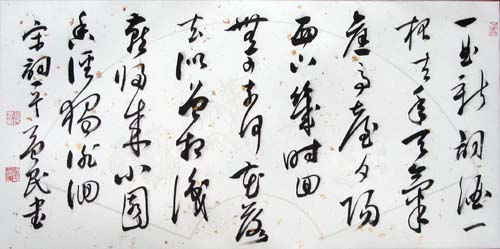 一曲新詞酒一
杯去年天氣
舊亭臺夕陽
西下幾時回
無可奈何花落
去似曾相識
燕歸來小園
香徑獨徘徊
宋詞 益民书